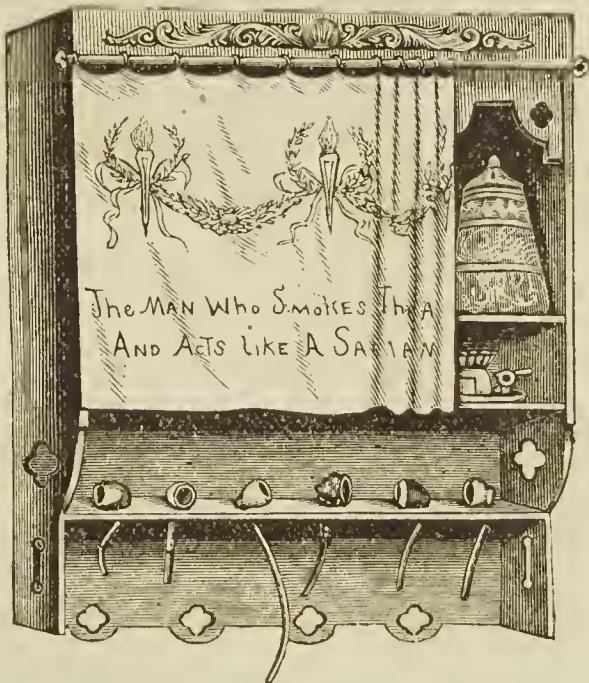 The MAN Who SmoKes
AND AcTS LIKE A